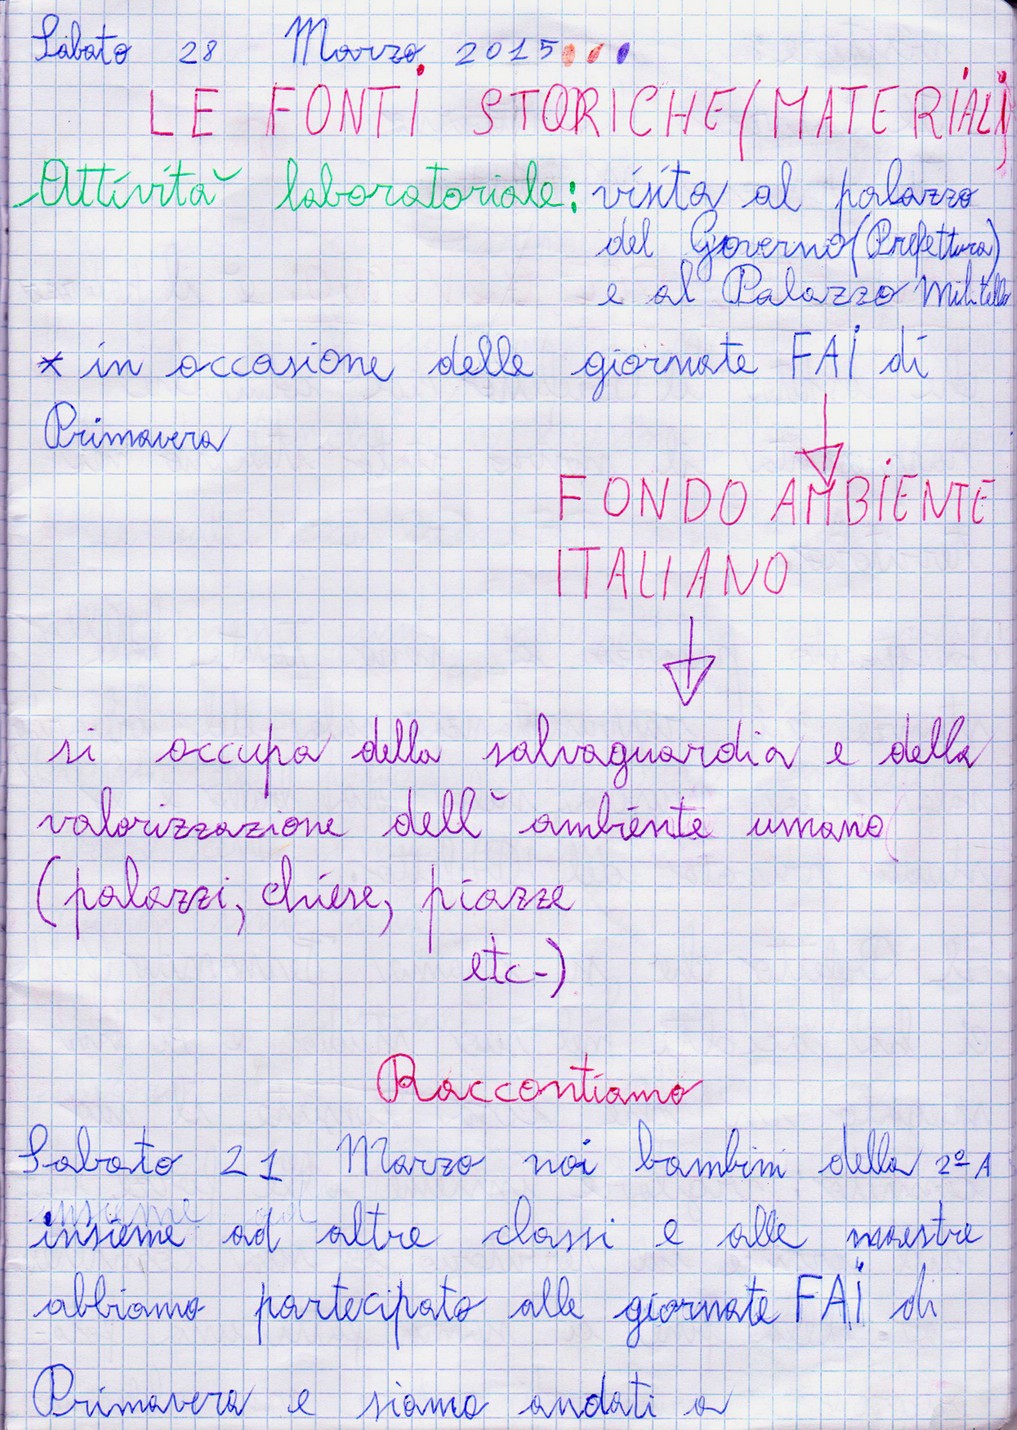 Sabato 28 Marzo 2015
LE FONTI STORICHE (MATERIALI)
Attività laboratoriale: visita al palazzo
del Governo (Prefettura)
e al Palazzo Militello
* in occasione delle giornate FAI di
Primavera
FONDO AMBIENTE
ITALIANO
si occupa della salvaguardia e della
valorizzazione dell'ambiente umano
(palazzi, chiese, piazze
etc-)
Raccontiamo
Sabato 21 Marzo noi bambini della 2ª A
insieme ad altre classi e alle maestre
abbiamo partecipato alle giornate FAI di
Primavera e siamo andati a